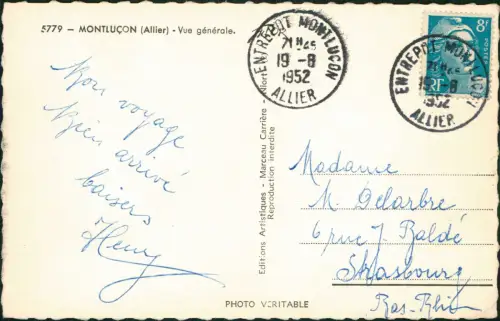 5779 - MONTLUÇON (Allier) - Vue générale.
Bon voyage
Bien arrivé
baisers
Henry
Editions Artistiques - Marceau Carrière - Niort
Reproduction interdite
ENTREPOT MONTLUÇON
21H45
19-8
1952
ALLIER
8F
RF
ENTREPOT MONTLUÇON
19-8
1952
ALLIER
Madame
M. Delarbre
6 rue J. Baldé
Strasbourg
Bas-Rhin
PHOTO VÉRITABLE